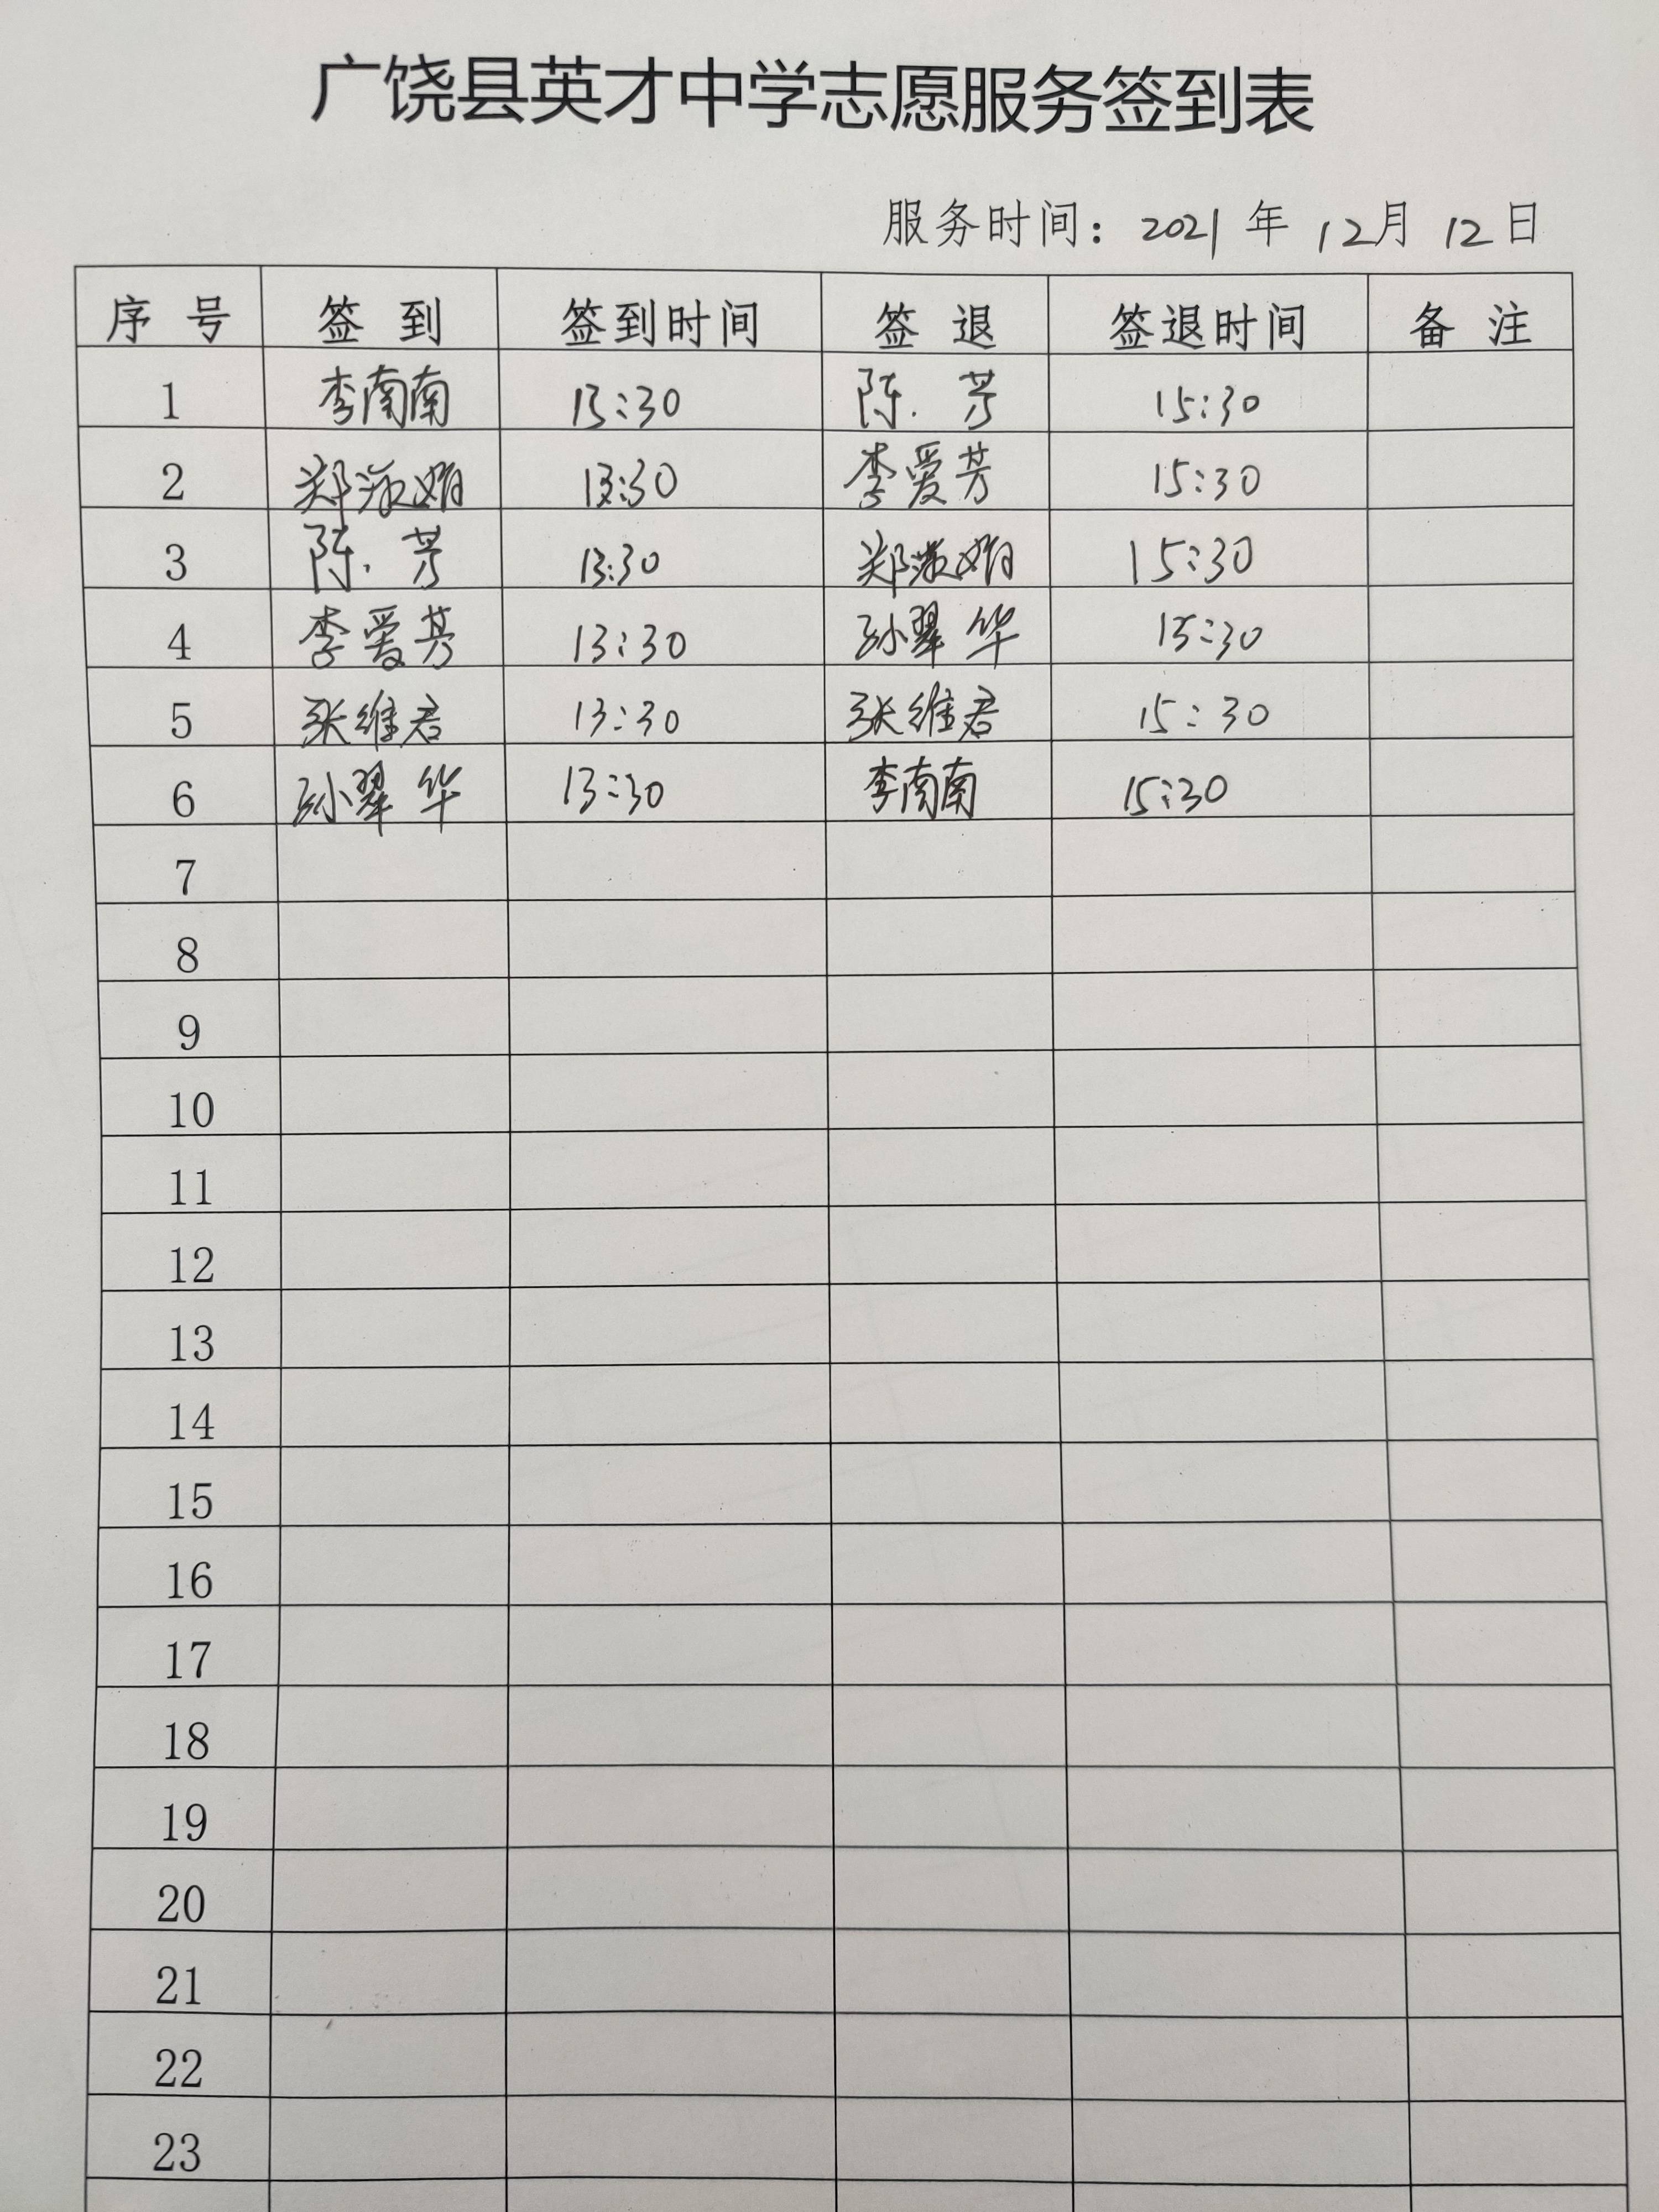 广饶县英才中学志愿服务签到表
服务时间：2021 年 12月 12日
序 号 签 到 签到时间 签 退 签退时间 备 注
1 李南南 13:30 陈芳 15:30
2 郑淑娟 13:30 李爱芳 15:30
3 陈芳 13:30 郑淑娟 15:30
4 李爱芳 13:30 孙翠华 15:30
5 张维君 13:30 张维君 15:30
6 孙翠华 13:30 李南南 15:30
7
8
9
10
11
12
13
14
15
16
17
18
19
20
21
22
23